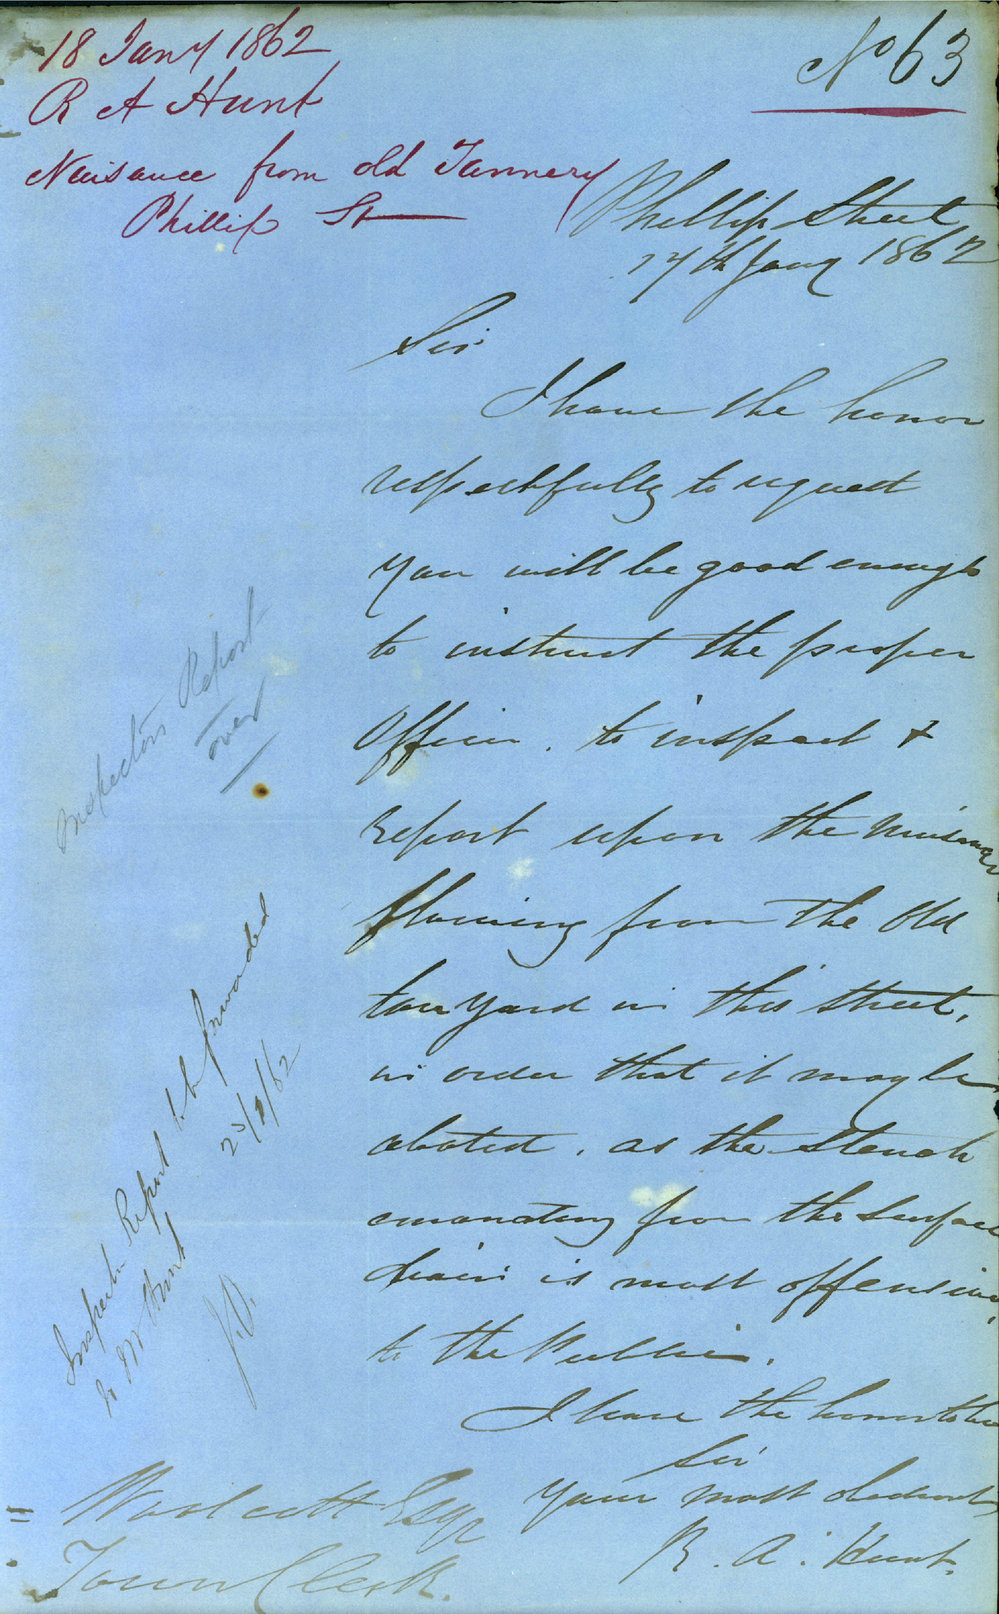 18 Jany 1862
R A Hunt
Nuisance from old Tannery
Phillip St
No 63
Phillip Street
17th Jany 1862
Sir
I have the honor
respectfully to request
you will be good enough
to instruct the proper
Officer. to inspect &
report upon the nuisance
flowing from the Old
tan yard in this street,
in order that it may be
abated. as the stench
emanating from the surface
drain is most offensive
to the Public.
I have the honor to be
Sir
Your most obedient
R. A. Hunt.
Woolcott Esqr
Town Clerk.
Inspectors Report
over
Inspectors Report to be forwarded
to Mr Hunt
23/1/62